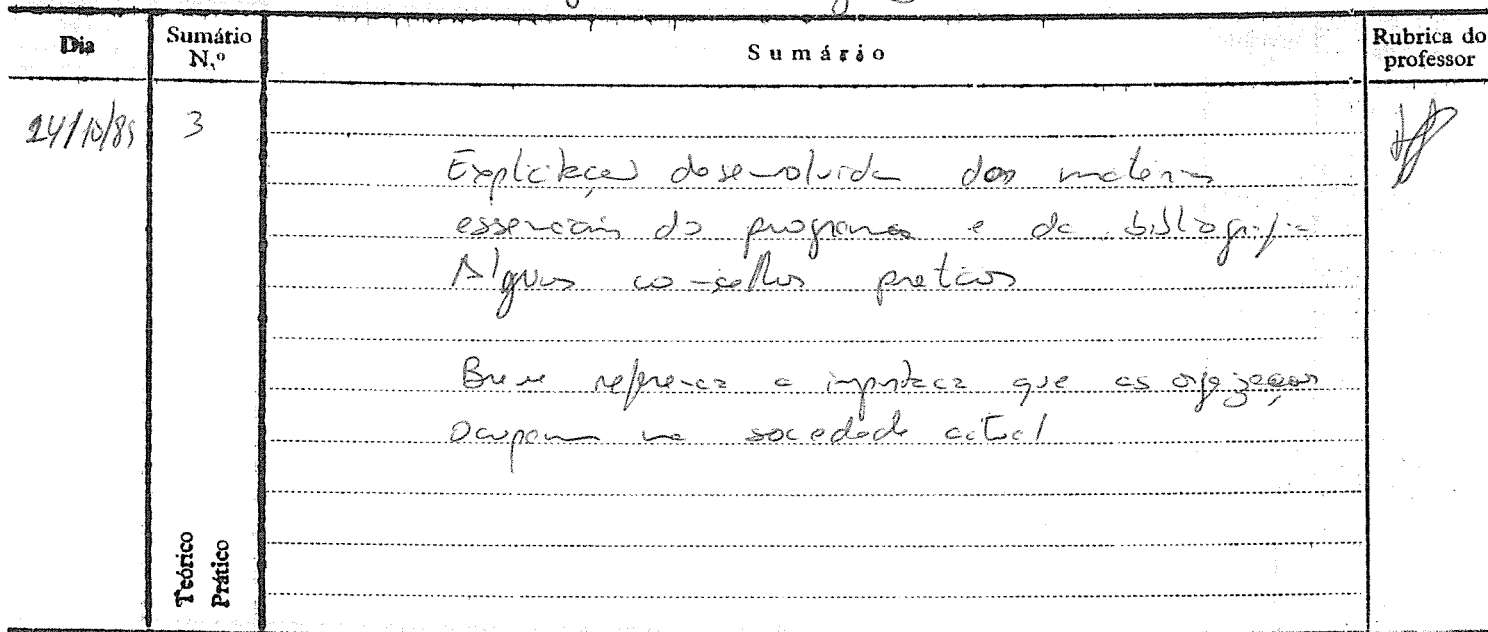 Dia Sumário N.º Sumário Rubrica do professor
24/10/85 3
Explicitação desenvolvida das matérias
essenciais do programa e da bibliografia
Alguns conselhos práticos
Breve referência a importância que as organizações
ocupam na sociedade actual
Teórico
Prático